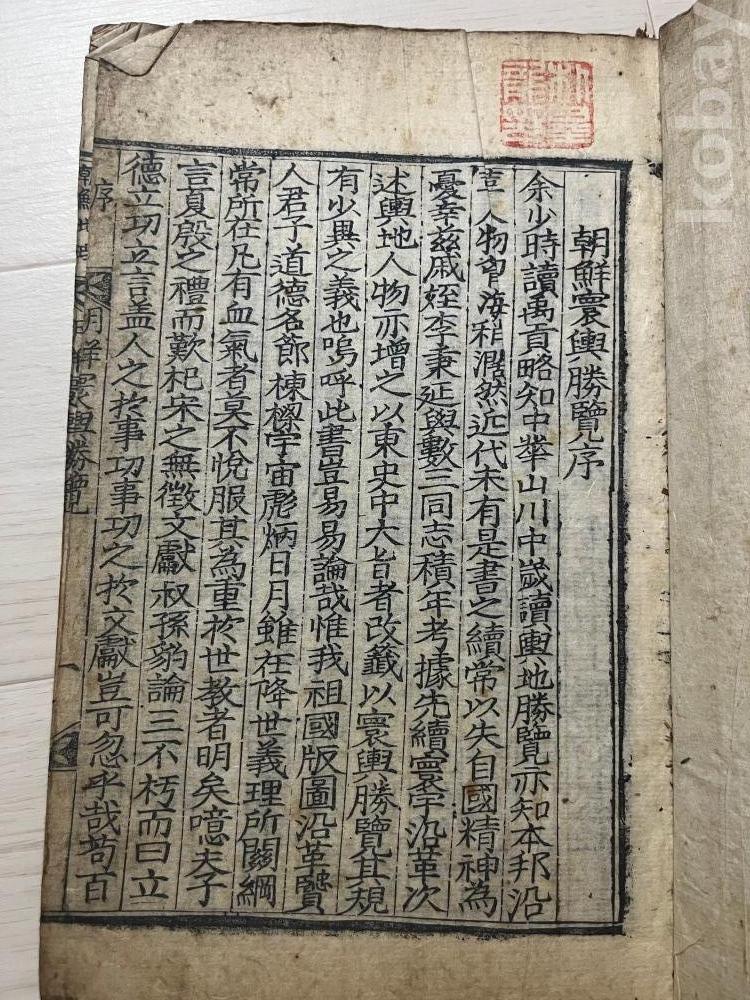 朝鮮寰輿勝覽序
余少時讀禹貢略知中華山川中歲讀輿地勝覽亦知本邦沿
革人物 海 然近代未有是書之續常以失自國精神為
憂幸玆戚姪李秉延與數三同志積年考據先續寰宇沿革次
述輿地人物亦增之以東史中大旨者改籤以寰輿勝覽其規
有少異之義也嗚呼此書豈易易論哉惟我祖國版圖沿革賢
人君子道德名節棟樑宇宙彪炳日月雖在降世義理所關綱
常所在凡有血氣者莫不悅服其為重於世教者明矣噫夫子
言夏殷之禮而歎杞宋之無徵文獻叔孫豹論三不朽而曰立
德立功立言盖人之於事功事功之於文獻豈可忽乎哉苟百
序
朝鮮寰輿勝覽
一
kobay